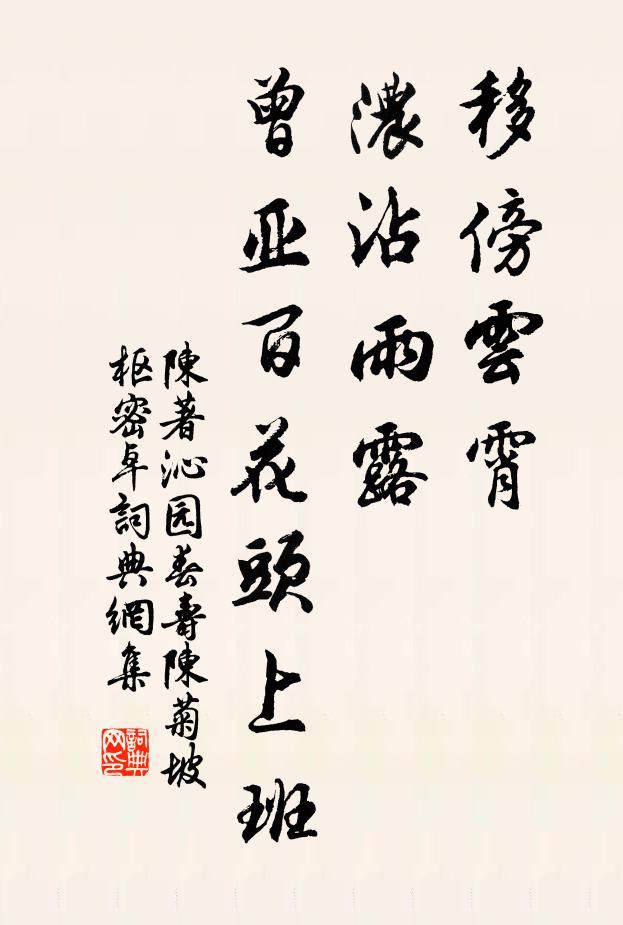 移傍雲霄
濃沾雨露
曾亚百花頭上班
陳著沁园春壽陳菊坡
枢密卓詞典網集
詞典
网印